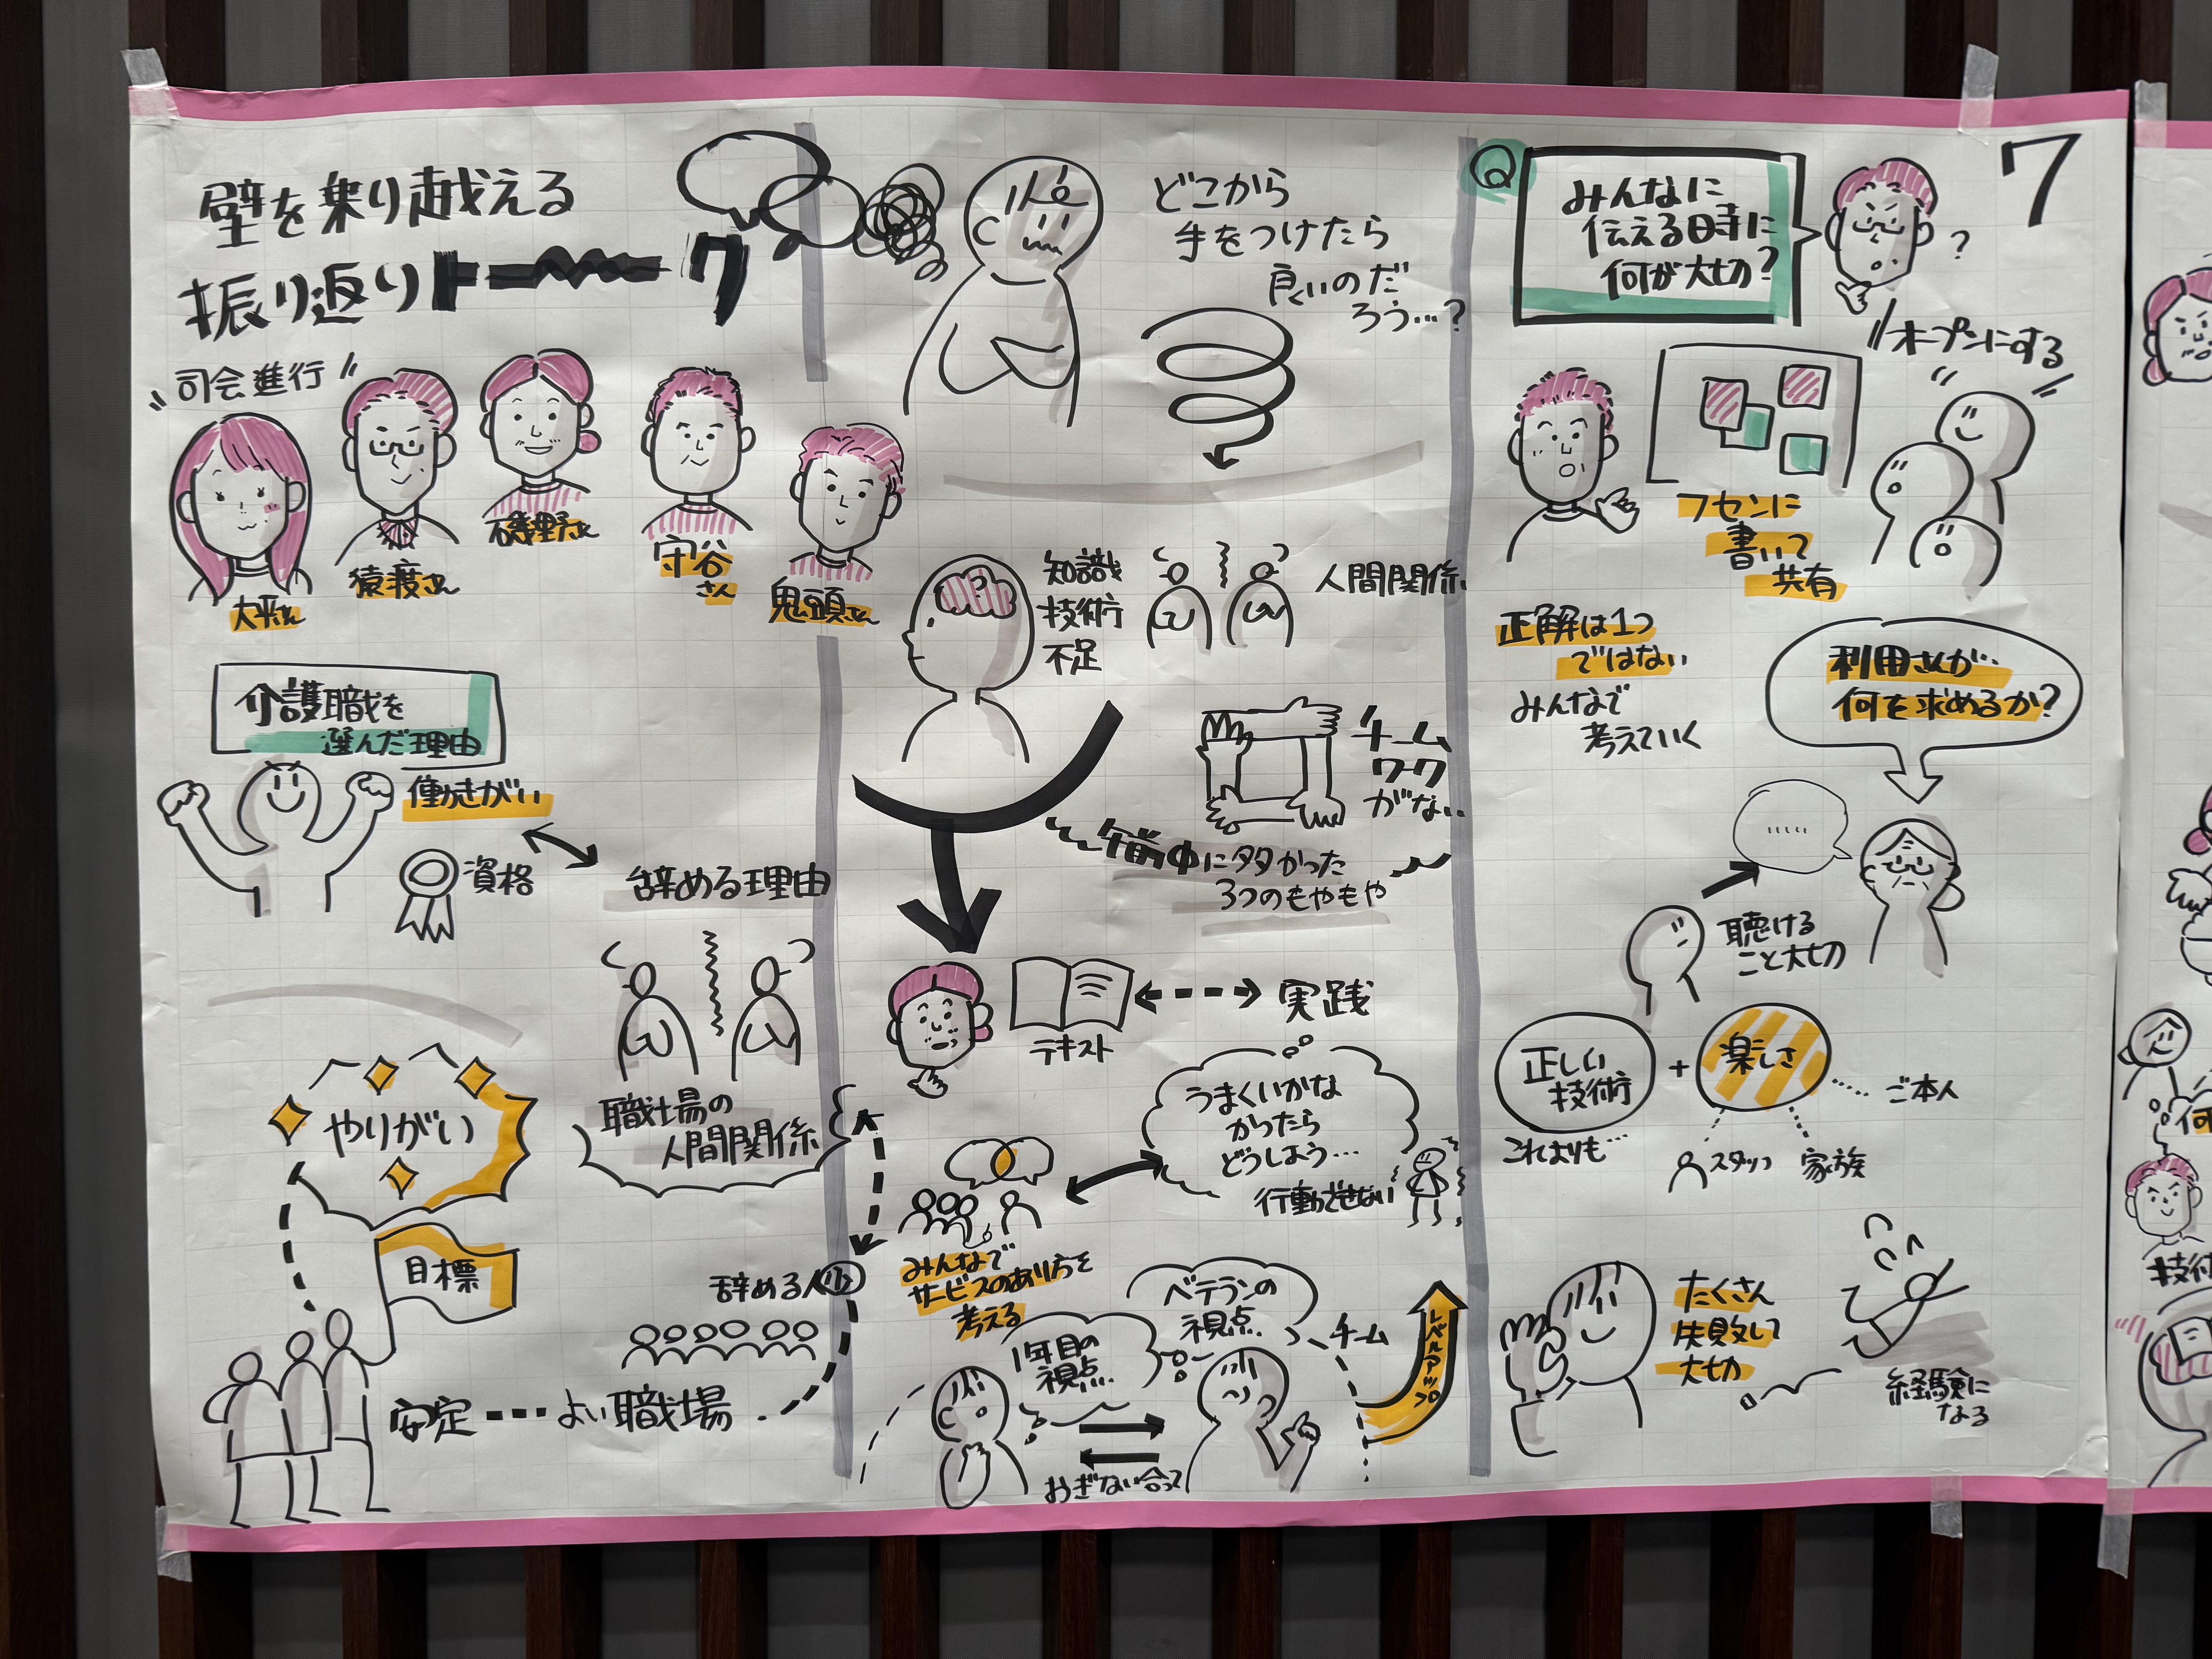 壁を乗り越える
振り返りトーーーク
司会進行
大平さん
猿渡さん
磯野さん
守谷さん
鬼頭さん
介護職を
選んだ理由
働きがい
資格
辞める理由
職場の
人間関係
やりがい
目標
辞める人 少
安定
よい職場
どこから
手をつけたら
良いのだ
ろう…?
知識
技術
不足
人間関係
チーム
ワーク
がない
午前中に多かった
3つのもやもや
テキスト
実践
うまくいかな
かったら
どうしよう…
行動できない
みんなで
サービスのあり方を
考える
1年目の
視点
ベテランの
視点
チーム
おぎない合って
レベルアップ
7
Q
みんなに
伝える時に
何が大切?
?
オープンにする
フセンに
書いて
共有
正解は1つ
ではない
みんなで
考えていく
利用さんが…
何を求めるか?
……
聴ける
こと大切
正しい
技術
+
楽しさ
これよりも…
ご本人
スタッフ
家族
たくさん
失敗して
大切
経験に
なる
何
技術